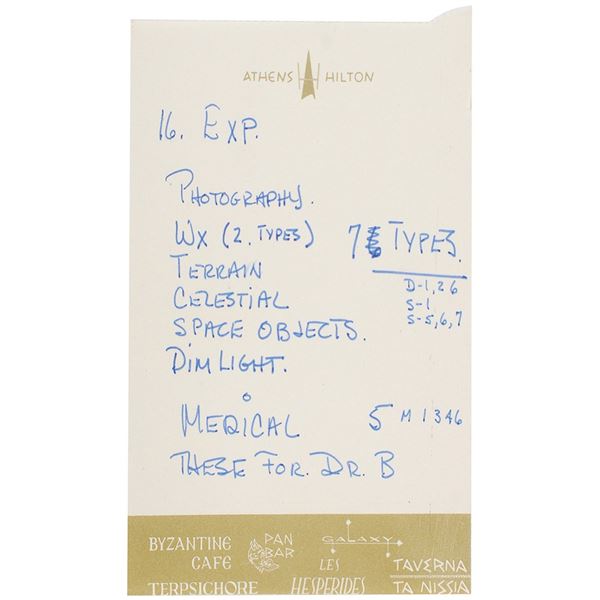 ATHENS HILTON
16. EXP.
PHOTOGRAPHY.
WX (2. TYPES) 7 TYPES.
TERRAIN D-1,2 6
CELESTIAL S-1
SPACE OBJECTS. S-5,6,7
DIM LIGHT.
MEDICAL 5 M 1 3 4 6
THESE FOR. DR. B
BYZANTINE CAFE
PAN BAR
GALAXY
LES HESPERIDES
TAVERNA TA NISSIA
TERPSICHORE